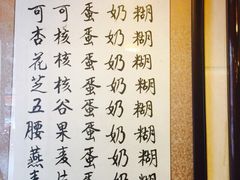 可可蛋奶糊
杏核蛋奶糊
花核蛋奶糊
芝蛋奶糊
五谷蛋奶糊
腰果蛋奶糊
燕麦